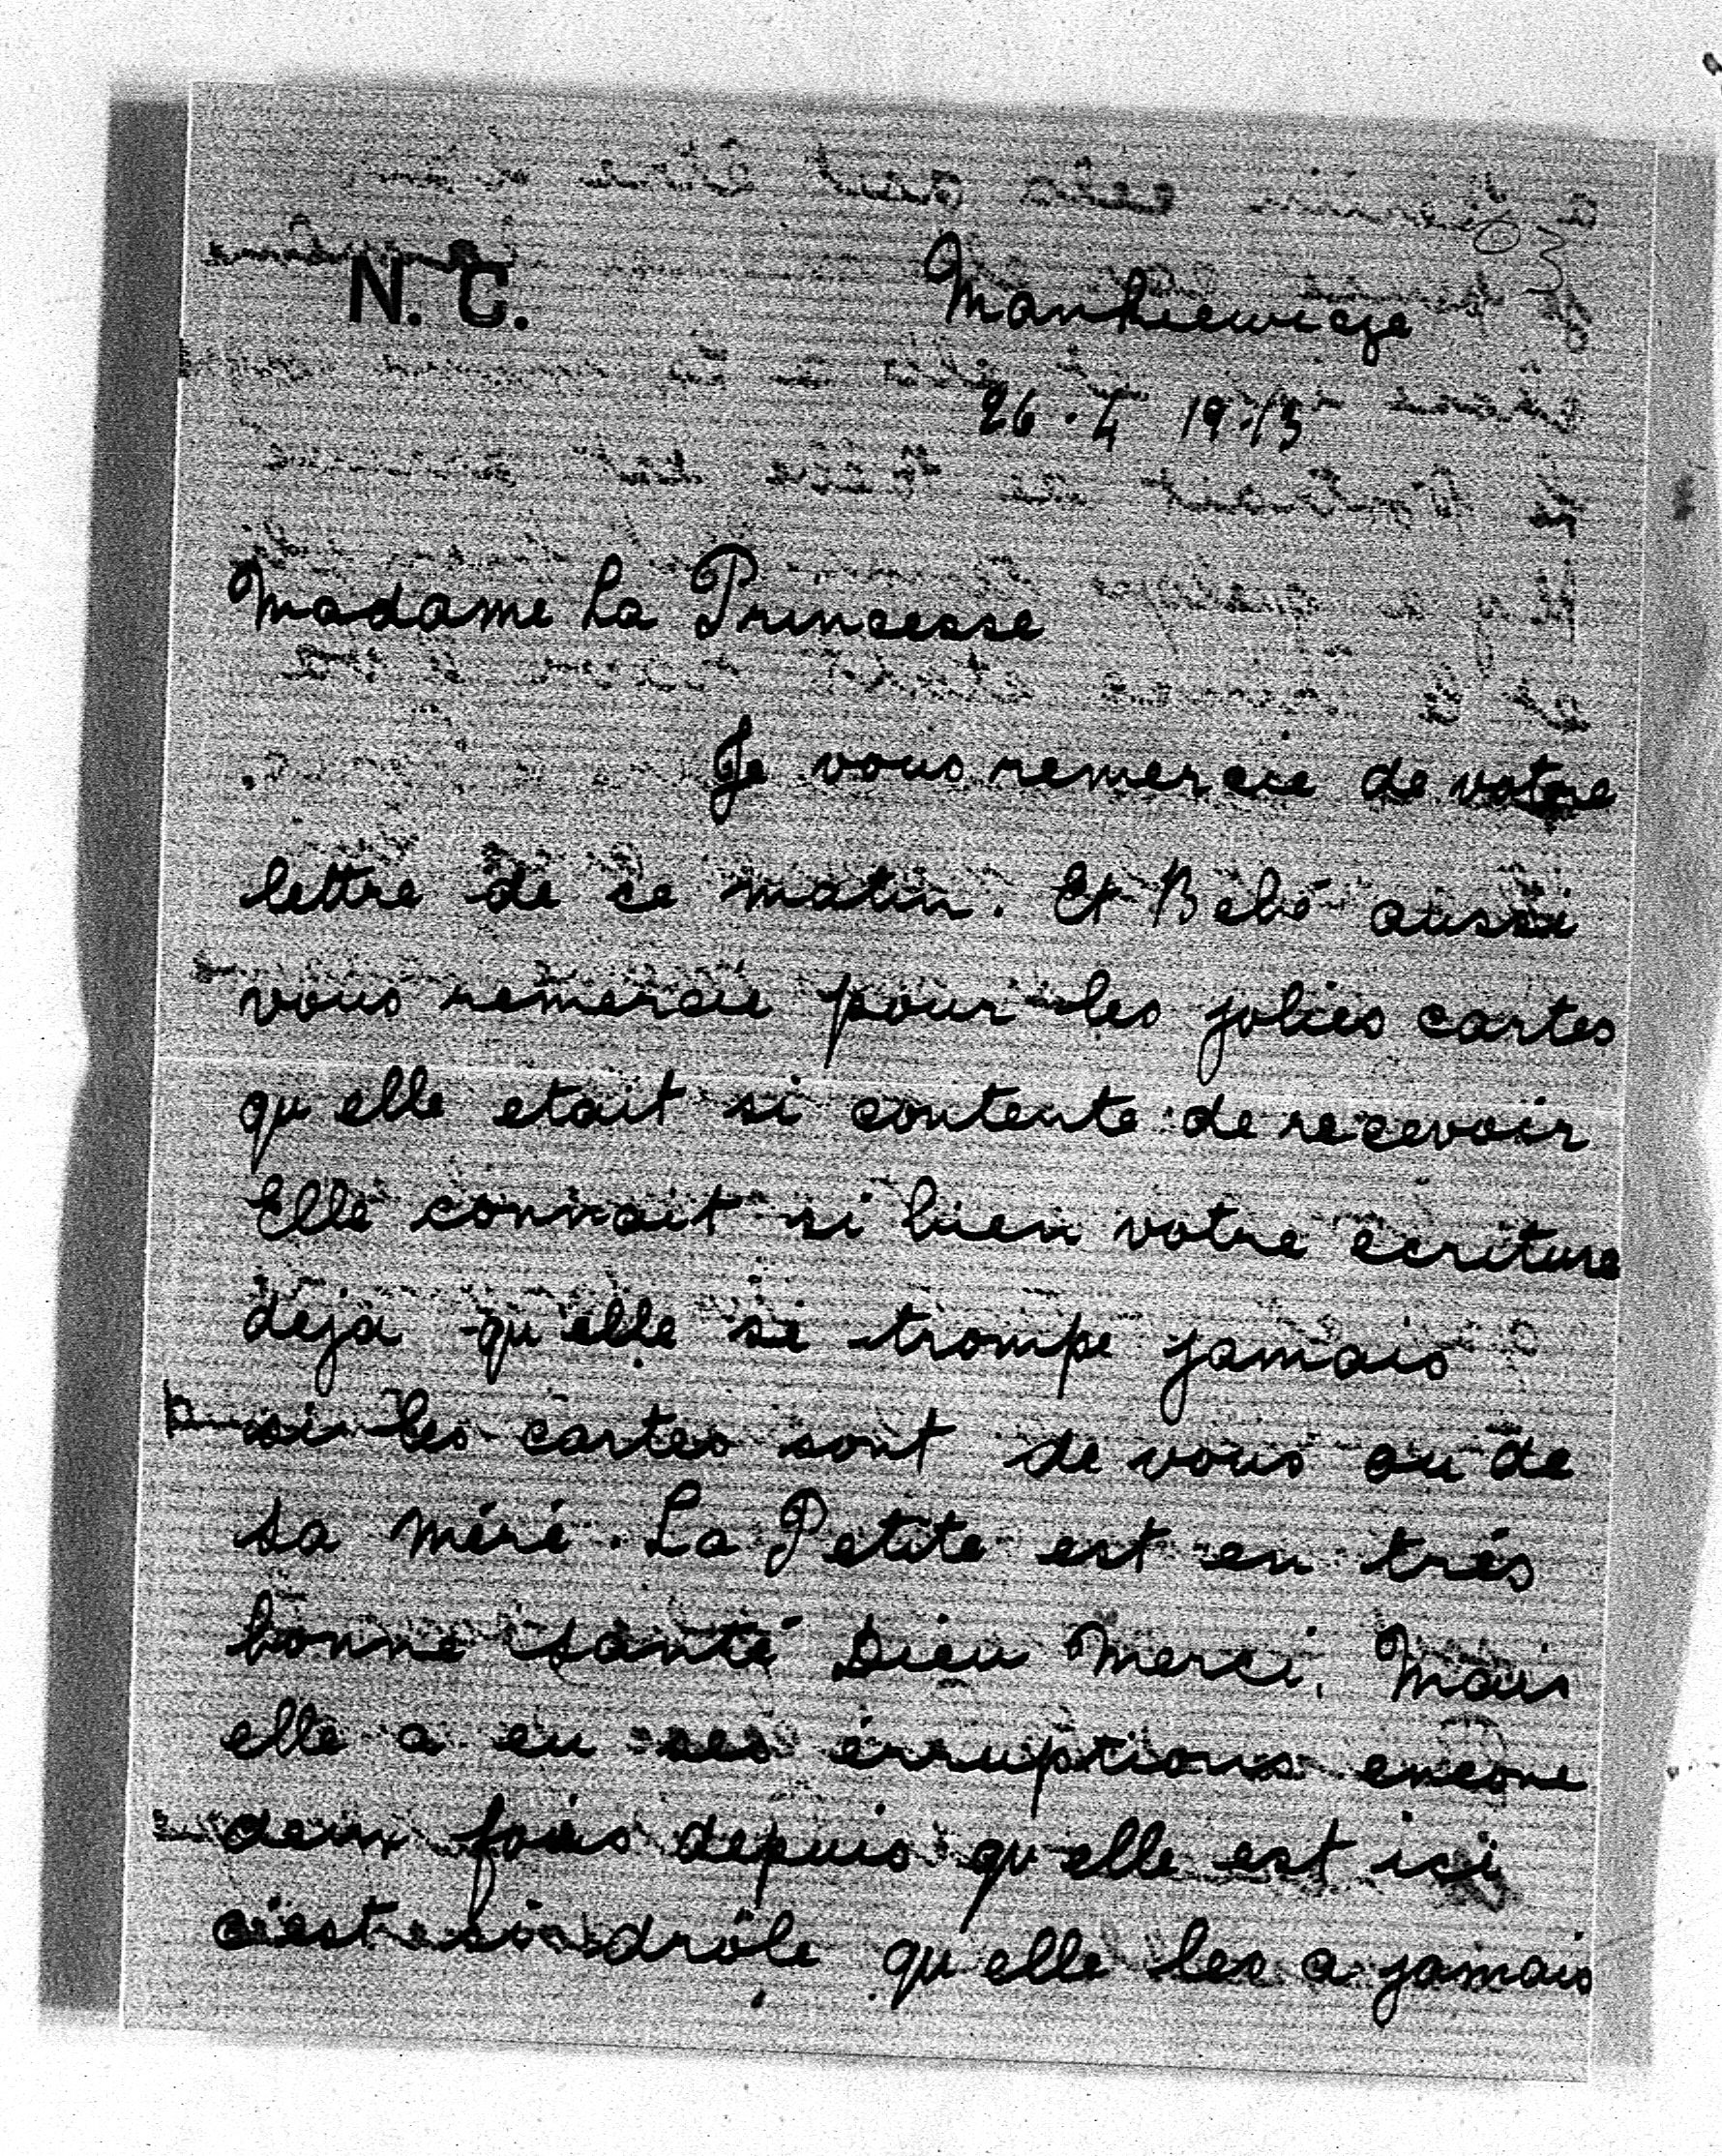 N. C.
Mankiewicze
26. 4 19.13
Madame La Princesse
Je vous remercie de votre
lettre de ce matin. Et Bébé aussi
vous remercie pour les jolies cartes
qu'elle etait si contente de recevoir
Elle connait si bien votre ecriture
deja qu'elle se trompe jamais
si les cartes sont de vous ou de
sa méré. La Petite est en trés
bonne santé Dieu Merci, Mais
elle a eu ses érruptions encore
deux fois depuis qu'elle est ici
c'est si drôle qu'elle les a jamais